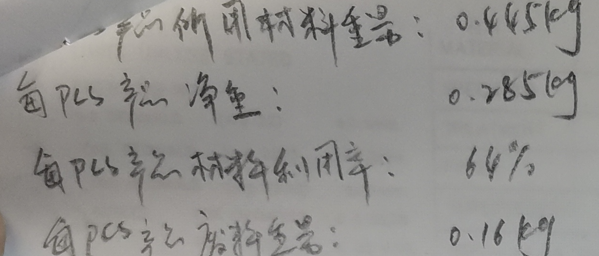 产品所用材料重量：0.445kg
每PCS产品净重：0.285kg
每PCS产品材料利用率：64%
每PCS产品废料重量：0.16kg